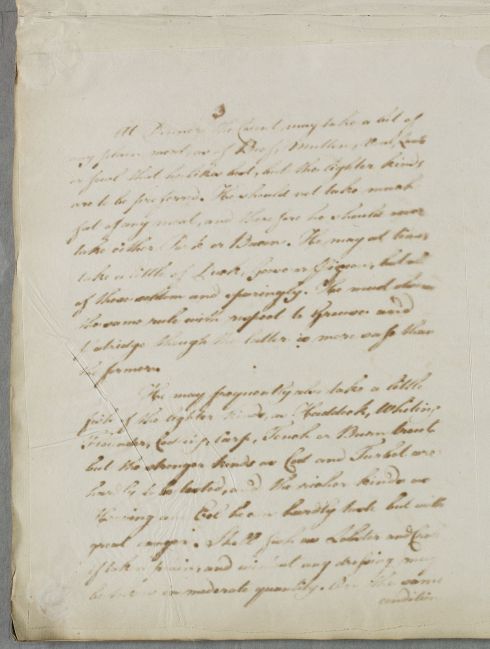 3
At Dinner the Coun[t] may take a bit of
any plain meat, as of Beef, Mutton, Veal, Lamb
or fowl that he likes best, but the lighter kinds
are to be preferred. He should not take much
fat of any meat, and therefore he should never
take either Pork or Bacon. He may at times
take a little of Duck, Goose or Pigeon, but
of these seldom and sparingly. He must
the same rule with respect to Grouse and
Patridge though the latter is more safe than
the former.
He may frequently also take a little
fish of the lighter kinds, as Haddock, Whiting
Flounder, Carp, Tench or
but the stronger kinds as Cod and Turbot are
to be tasted, and the richer kinds as
Herring and Eel hardly took but with
great danger. Shell fish as Lobster and Crab
if taken plain and without any dressing may
be in moderate quantity. On the same
condition